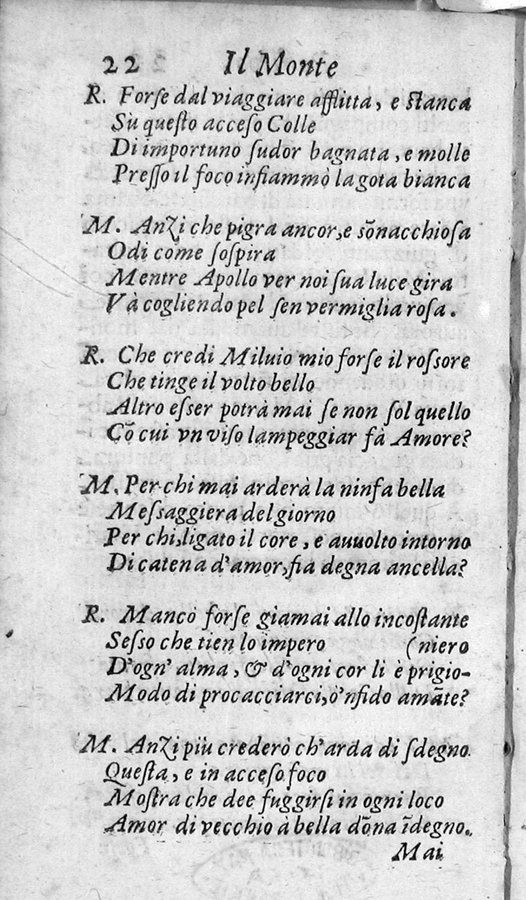 22 Il Monte
R. Forſe dal viaggiare afflitta, e ſtanca
Sù queſto acceſo Colle
Di importuno ſudor bagnata, e molle
Preſſo il foco infiammò la gota bianca
M. Anzi che pigra ancor, e sõnacchioſa
Odi come ſoſpira
Mentre Apollo ver noi ſua luce gira
Và cogliendo pel ſen vermiglia roſa.
R. Che credi Miluio mio forſe il roſſore
Che tinge il volto bello
Altro eſſer potrà mai ſe non ſol quello
Cõ cui vn viſo lampeggiar fà Amore?
M. Per chi mai arderà la ninfa bella
Meſſaggiera del giorno
Per chi, ligato il core, e auuolto intorno
Di catena d'amor, fia degna ancella?
R. Mancò forſe giamai allo incoſtante
Seſſo che tien lo impero (niero
D'ogn' alma, & d'ogni cor li è prigio-
Modo di procacciarci, ò'nfido amãte?
M. Anzi più crederò ch'arda di ſdegno
Queſta, e in acceſo foco
Moſtra che dee fuggirſi in ogni loco
Amor di vecchio à bella dõna ĩdegno.
Mai